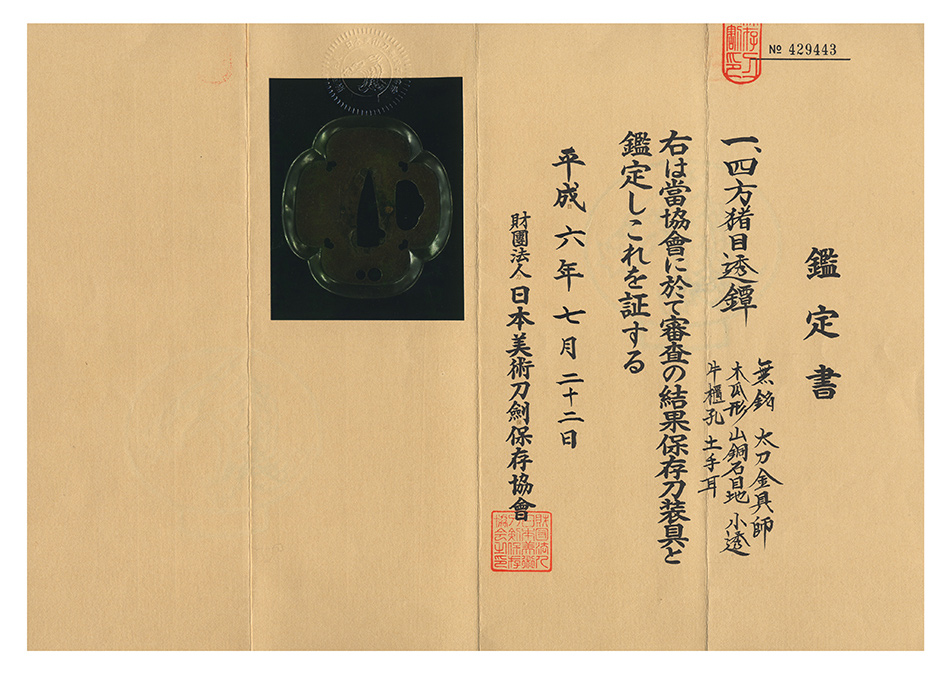 № 429443
鑑定書
一、四方猪目透鐔
無銘 太刀金具師
木瓜形 山銅石目地 小透
片櫃孔 土手耳
右は當協會に於て審査の結果保存刀装具と
鑑定しこれを証する
平成六年七月二十二日
財團法人日本美術刀劍保存協會